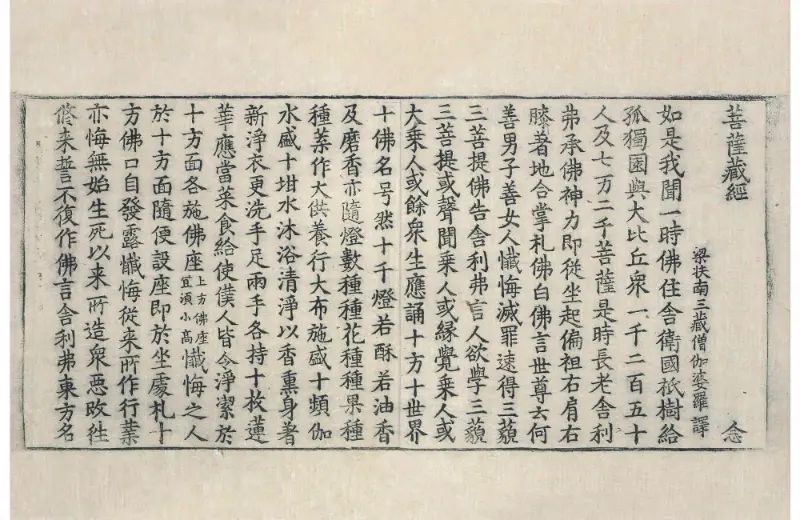 菩薩藏經 念
梁扶南三藏僧伽婆羅譯
如是我聞一時佛住舍衛國祇樹給
孤獨園與大比丘衆一千二百五十
人及七万二千菩薩是時長老舍利
弗承佛神力即從坐起偏袒右肩右
膝著地合掌礼佛白佛言世尊云何
善男子善女人懺悔滅罪速得三藐
三菩提佛告舍利弗言人欲學三藐
三菩提或聲聞乘人或縁覺乘人或
大乘人或餘衆生應誦十方十世界
十佛名号然十千燈若酥若油香
及磨香亦隨燈數種種花種種果種
種菜作大供養行大布施盛十頻伽
水盛十坩水沐浴清淨以香熏身著
新淨衣更洗手足兩手各持十枚蓮
華應當菜食給使僕人皆令淨潔於
十方面各施佛座上方佛座宜須小高懺悔之人
於十方面隨便設座即於坐處礼十
方佛口自發露懺悔從来所作行業
亦悔無始生死以来所造衆惡改往
修来誓不復作佛言舍利弗東方名